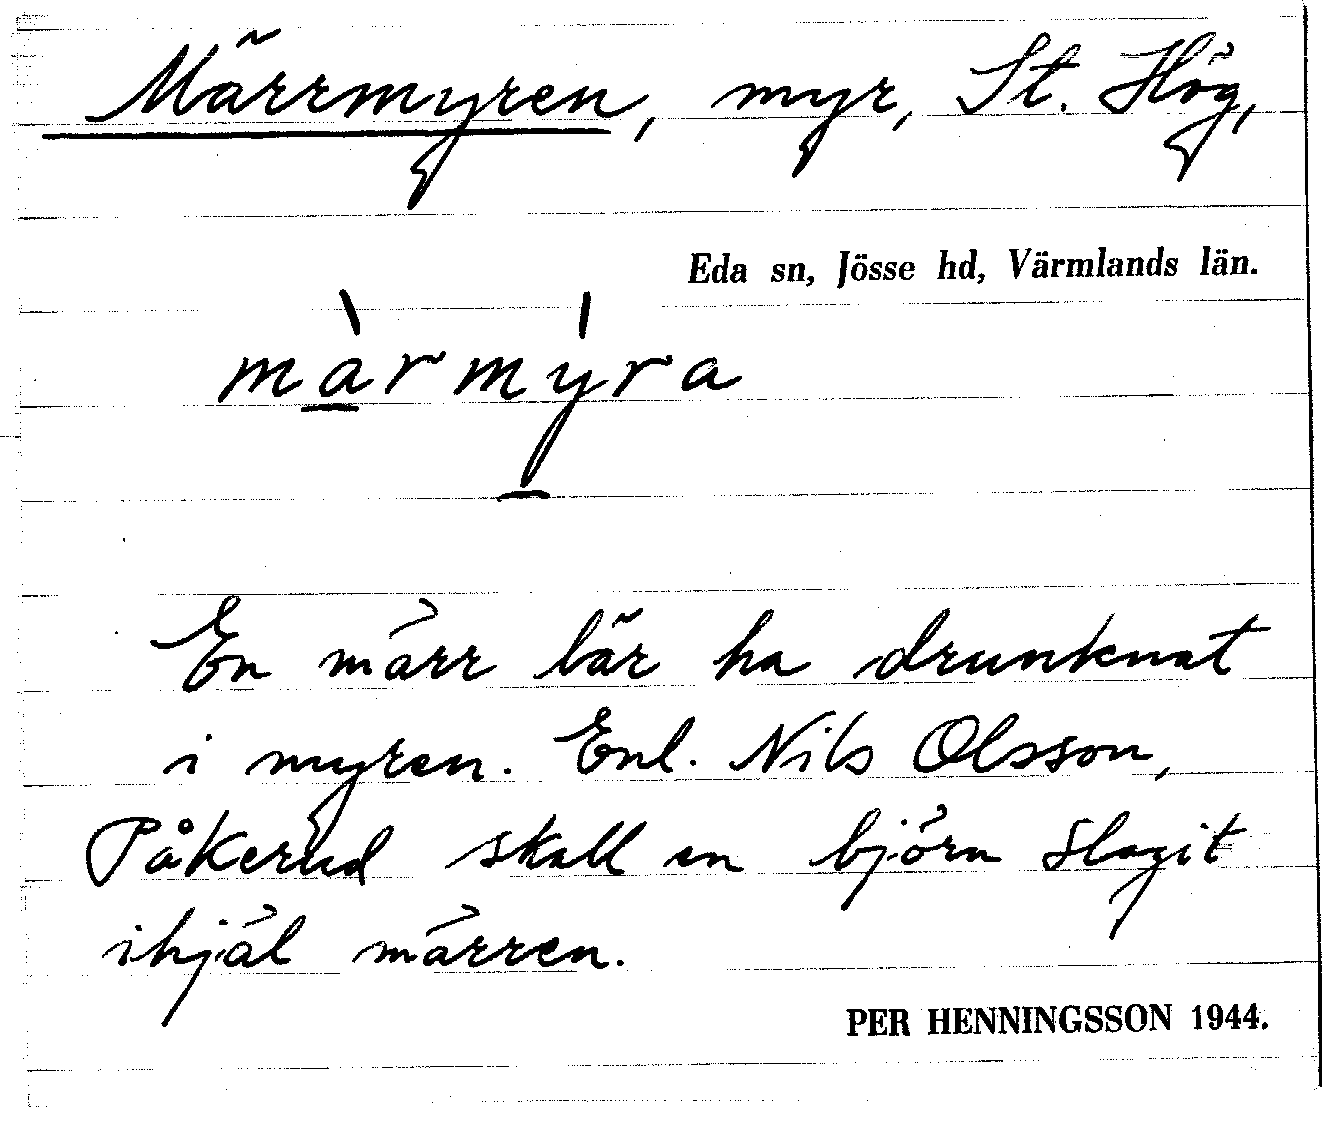 Märrmyren, myr, St. Hög,
Eda sn, Jösse hd, Värmlands län.
màrmýra
En märr lär ha drunknat
i myren. Enl. Nils Olsson,
Påkerud skall en björn slagit
ihjäl märren.
PER HENNINGSSON 1944.